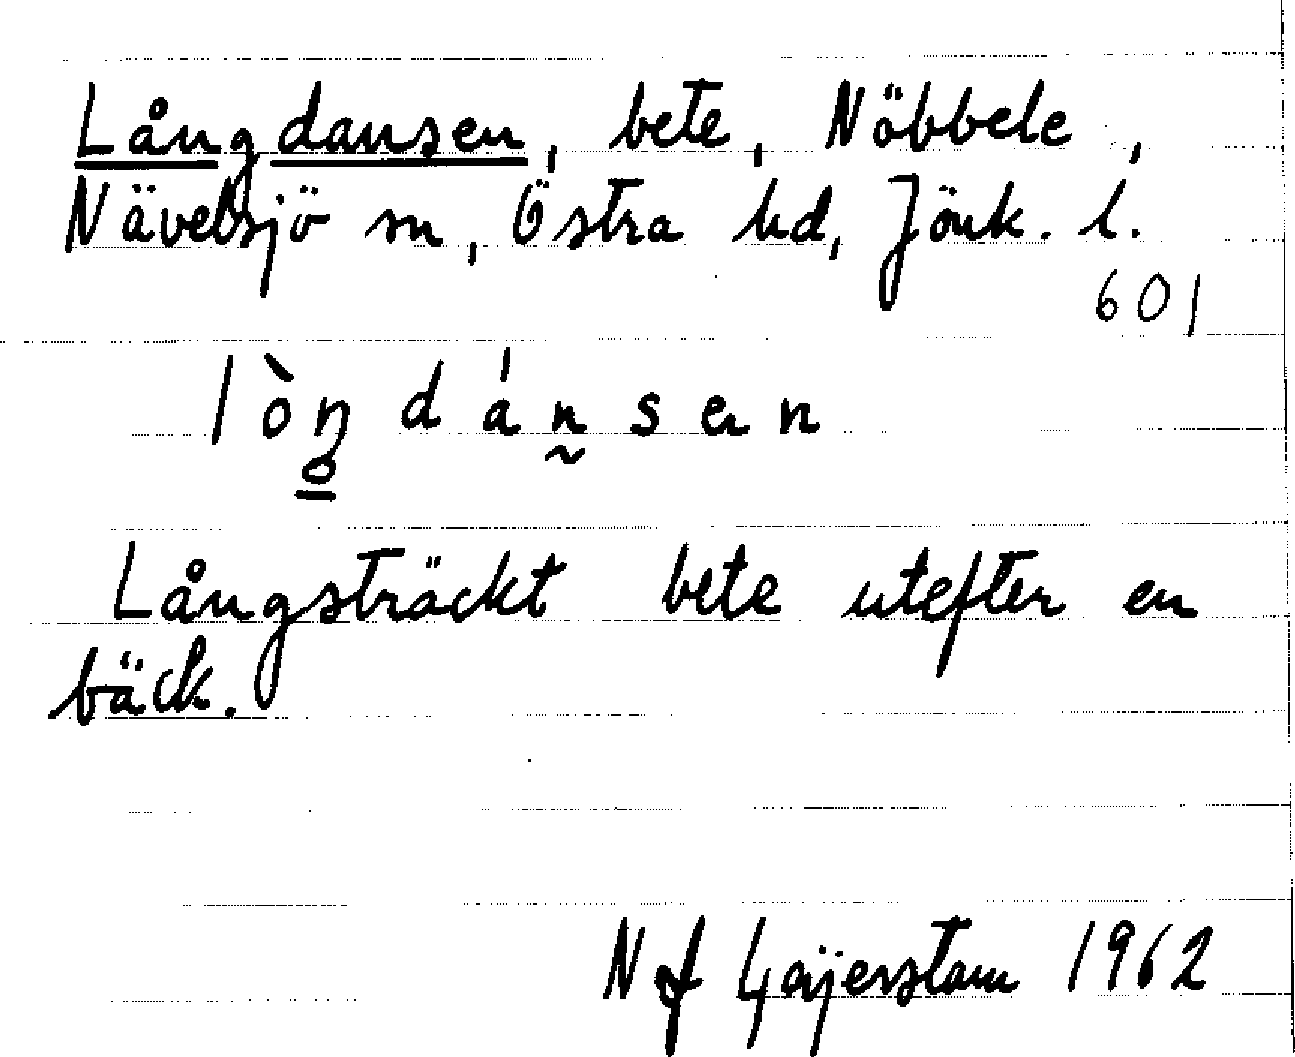 Långdansen, bete, Nöbbele,
Nävelsjö sn, Östra hd, Jönk. l.
601
lòŋ dánsen
Långsträckt bete utefter en
bäck.
N af Geijerstam 1962